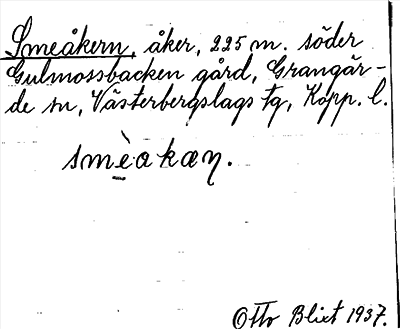 Smeåkern, åker, 225 m. söder
Gulmossbacken gård, Grangär-
de sn, Västerbergslags tg, Kopp. l.
smèakæn.
Otto Blixt 1937.